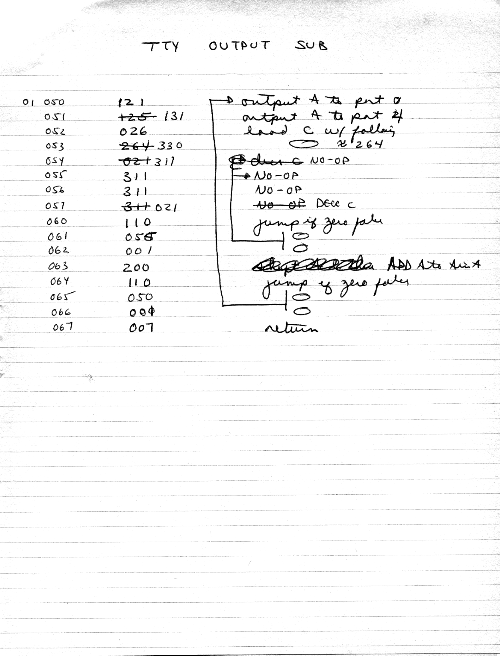 TTY OUTPUT SUB
01 050 121 output A to port 0
051 125 131 output A to port 4
052 026 load C w/ following
053 264 330 264
054 021 311 decr C NO-OP
055 311 NO-OP
056 311 NO-OP
057 311 021 NO-OP DECR C
060 110 jump if zero false
061 055
062 001
063 200 ADD A to A
064 110 jump if zero false
065 050
066 001
067 007 return